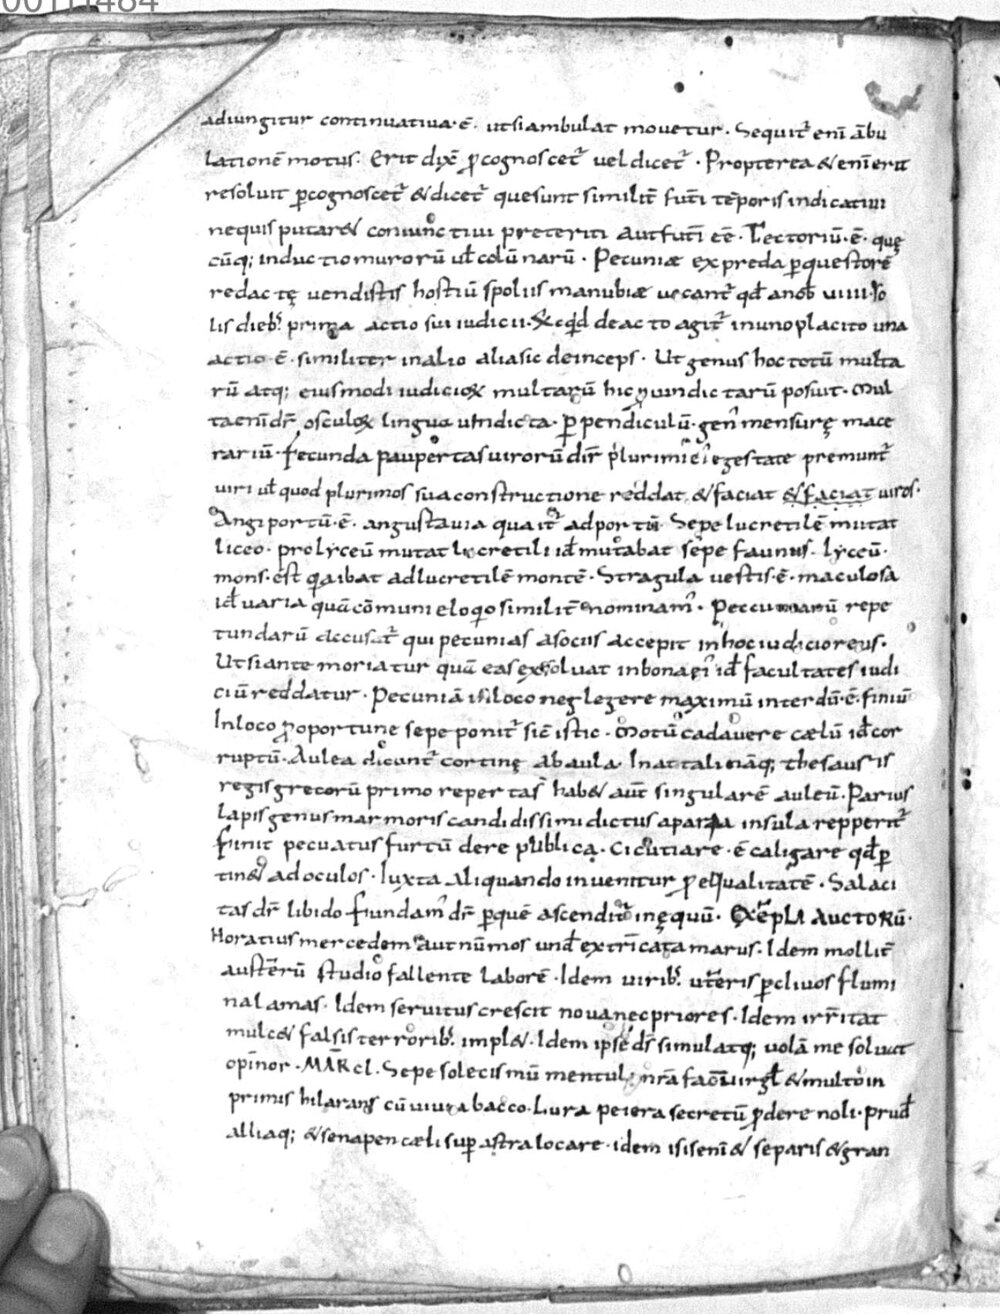 adiungitur continuatiua·ē· ut si ambulat mouetur· Sequit᷑ enī ābu
lationē motus· Erit dix̄ p̄cognoscet᷑ uel dicet᷑· Propterea & enī erit
resoluit p̄cognoscet᷑ & dicet᷑ que sunt similit᷑ futī tēporis indicatiui
nequis putar& coniunctiui preteriti aut futī eē· Tectoriū·ē· quę
cūq; inductio murorū ut̄ colūnarū· Pecuniæ ex preda p̄ questorē
redactę uendistis hostiū spoliis manubiæ uocant᷑ qđ a nob̄ uiiii· So
lis dieb; prima actio sui iudicii· & cqđ de acto agit᷑ in uno placito una
actio·ē· similiter in alio alia sic deinceps· Ut genus hoc totū multa
rū atq; eiusmodi iudicioꝝ multarū hic uindictarū posuit· Mul
ta enī dr̄ osculoꝝ lingua uindicta· P̄pendiculū· gen᷑ mensurę mace
rariū· Fecunda paupertas uirorū dir̄ plurimi egestate premunt᷑
uiri ut̄ quod plurimos sua constructione reddat & faciat & faciat uiros·
Angiportū·ē· angusta uia qua it᷑ ad portū· Sepe lucretilē mutat
liceo· pro lyceū mutat lucretili id̄ mutabat sepe faunus· lyceū·
mons·est q̄a ibat ad lucretilē montē· Stragula uestis·ē· maculosa
id̄ uaria quā cōmuni eloqio similit᷑ nominam᷑· Peccuniarū repe
tundarū accusat᷑ qui pecunias a sociis accepit in hoc iudicio reus·
Ut si ante moriatur quā eas exsoluat in bona ei᷑ id̄ facultates iudi
ciū reddatur· Pecuniā in loco neglegere maximū interdū·ē· finiū
In loco p̄ oportune sepe ponit᷑ sic̄ istic· Motū cadauere cælū id̄ cor
ruptū· Aulea dicunt᷑ cortinę ab aula· In attali nāq; thesauris
regis grecorū primo repertas hab& aut̄ singularē auleū· Parius
lapis genus marmoris candidissimi dictus a para insula repperit᷑
finit pecuatus furtū dere publica· Cicutiare·ē caligare qđ p̄
tin& ad oculos· Iuxta aliquando inuenitur p̄ equalitatē· Salaci
tas dr̄ libido fundam᷑ dr̄ p̄ quē ascendit᷑ in ęquū· EXĒPLA AUCTORŪ·
Horatius mercedem aut nūmos und̄ extricata marus· Idem mollit᷑
austerū studio fallente laborē· Idem uirib; uteris p̄ cliuos flumi
na lamas· Idem seruitus crescit noua nec priores· Idem irritat
mulc& falsis terrorib; impl&· Idem ipse dr̄ simulatq; uolā me soluet
opinor· MARcl· Sepe solecismū mentula nr̄a facit uirgil̄ & multo in
primis hilarans cū uiuia bacco· Iura peiera secretū p̄dere noli· prud̄
alliaq; & senapen cæli sup̄ astra locare· idem isiseni & separis & gran